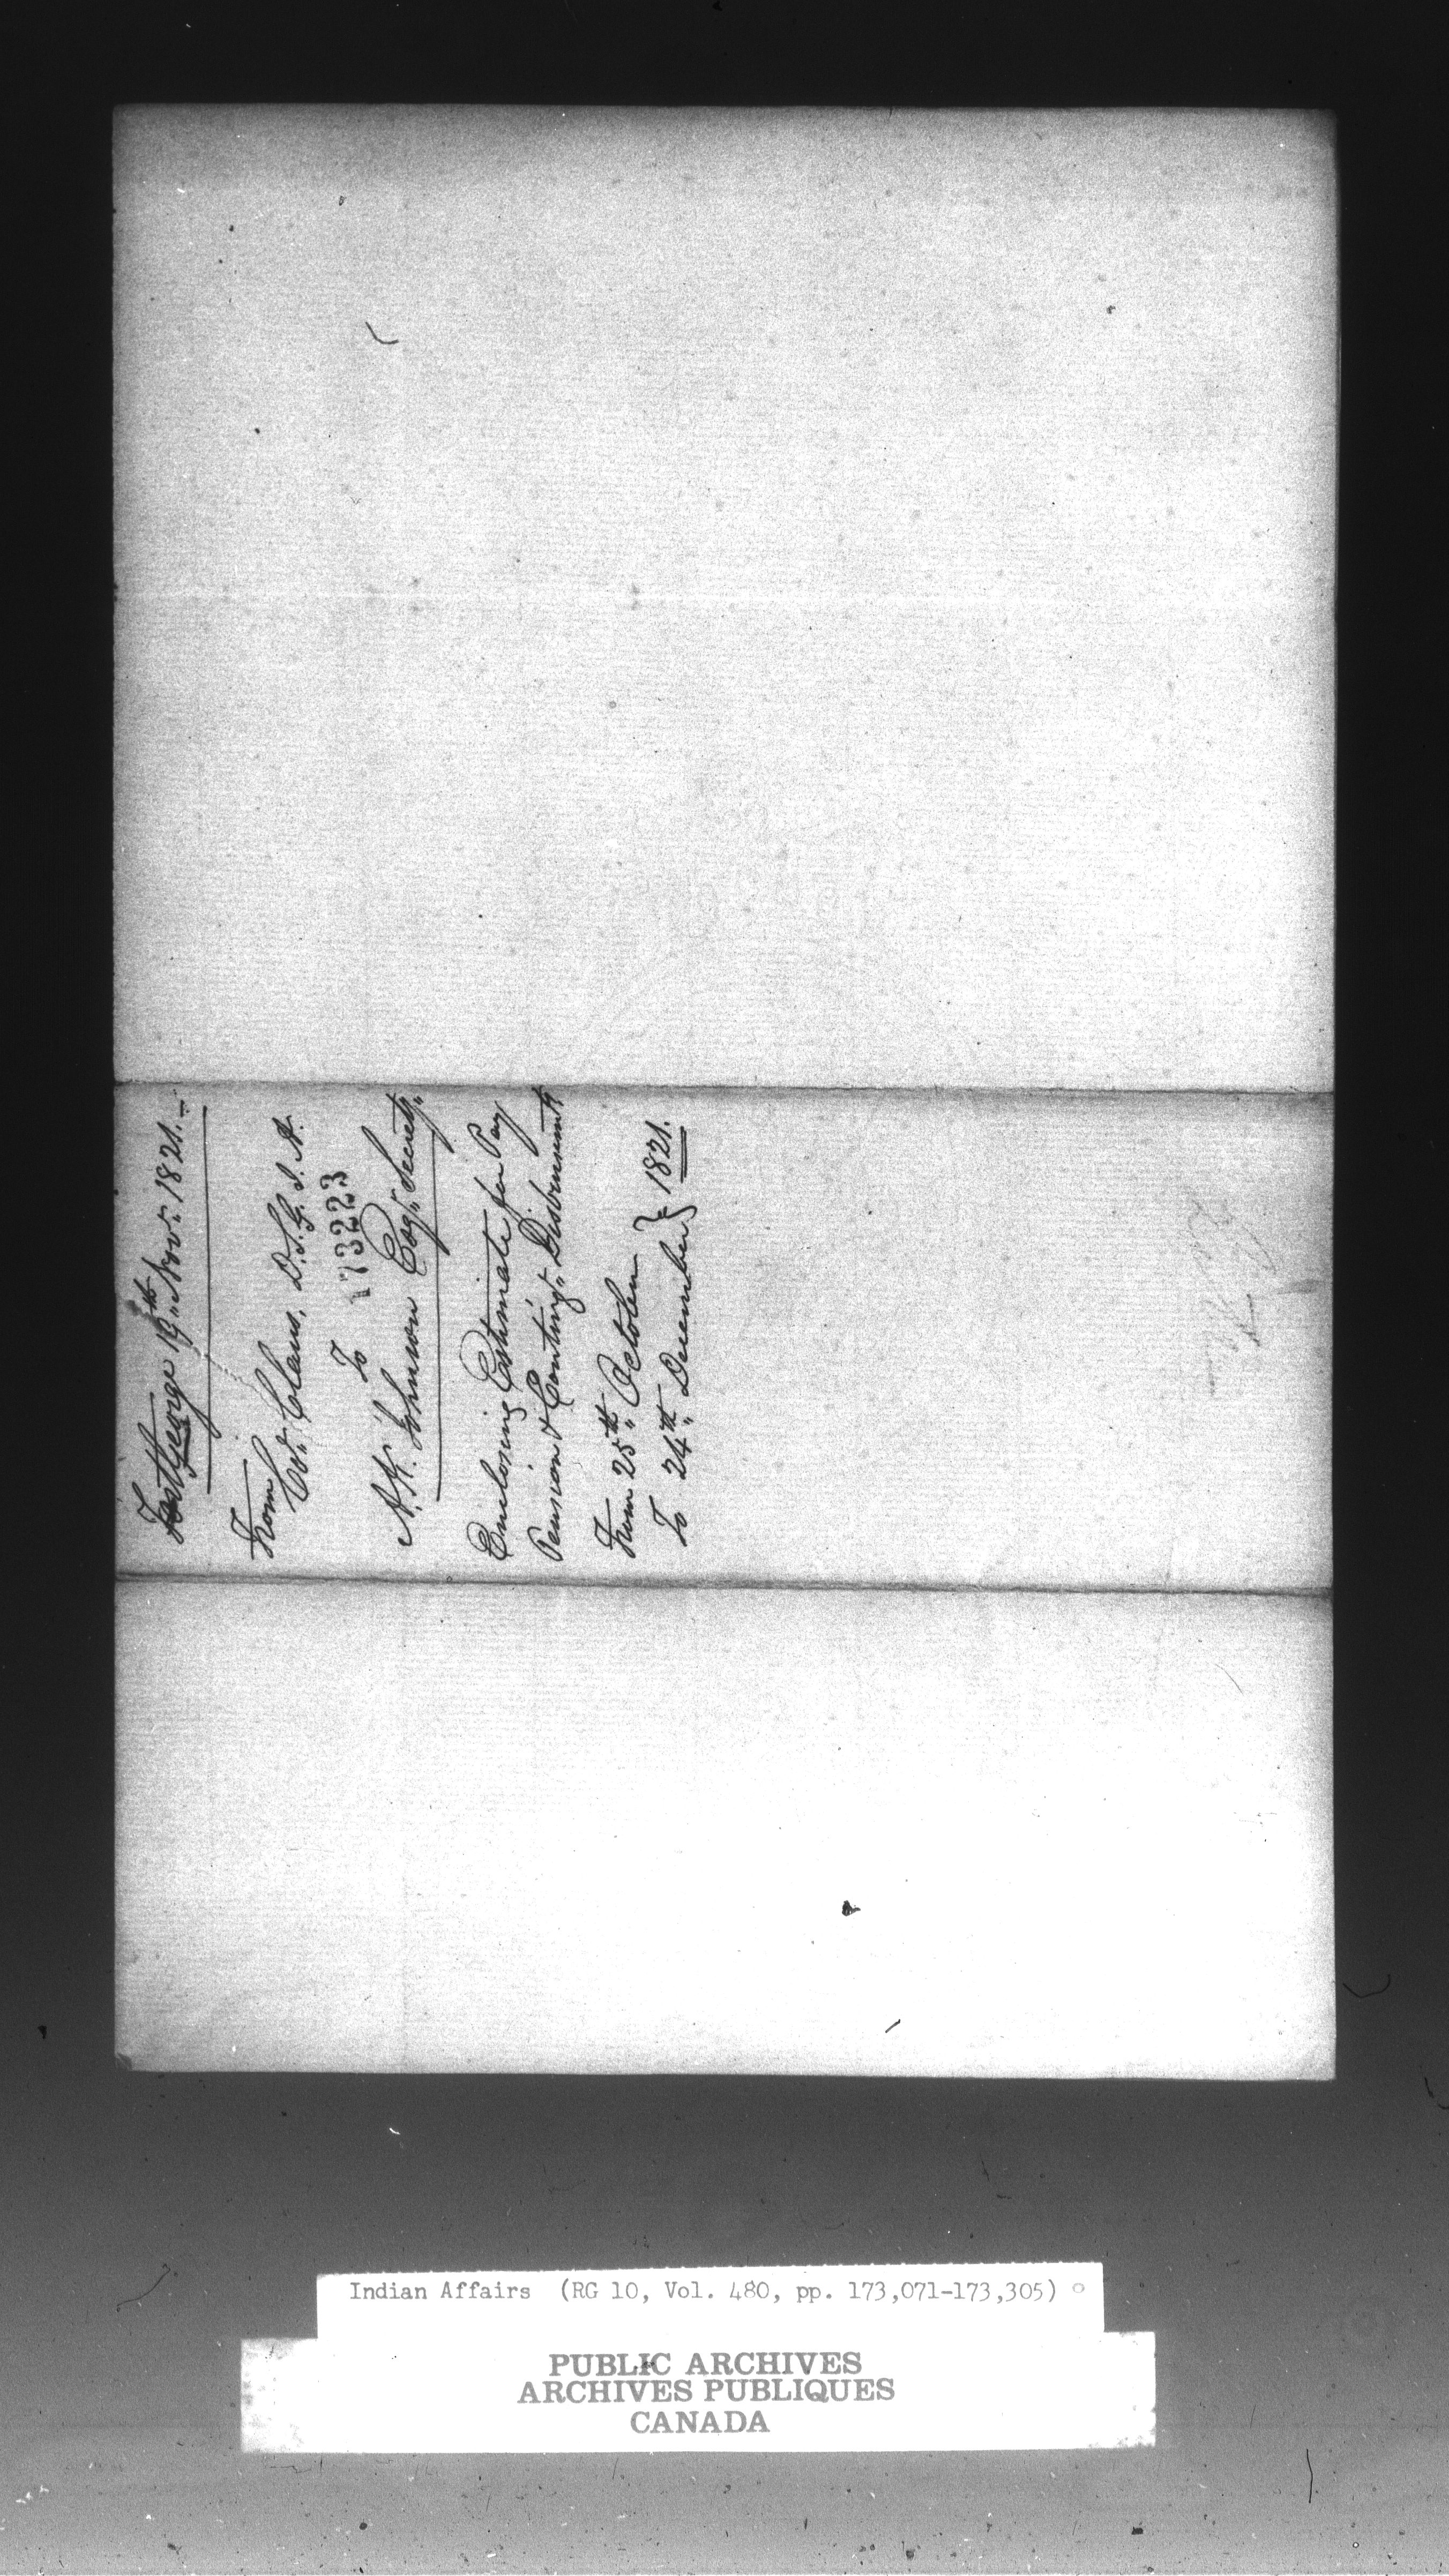 Fort George 19th Novr. 1821.—
From
Col. Claus, D.S.G.I.A.
173223
To
N.K. Johnson Esqr. Secrety.
Enclosing Estimate for Pay
Pension & Contingt. Disbursemts
From 25th October
To 24th December } 1821.
Indian Affairs (RG 10, Vol. 480, pp. 173,071-173,305)
PUBLIC ARCHIVES
ARCHIVES PUBLIQUES
CANADA